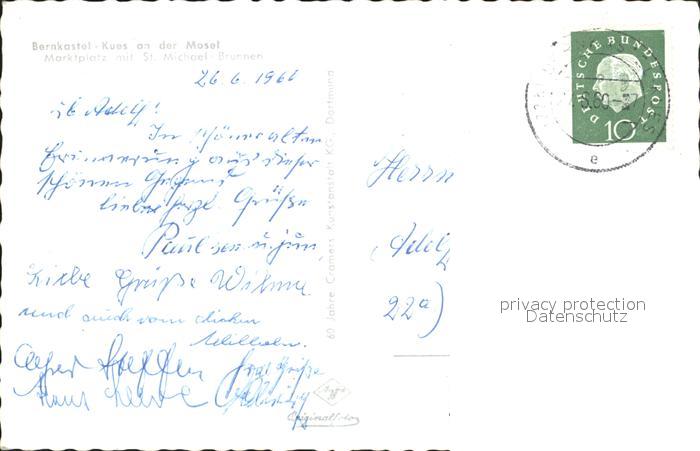 Bernkastel-Kues an der Mosel
Marktplatz mit St. Michael-Brunnen
26.6.1960
lb Adolf!
In schöner alter
Erinnerung aus dieser
schönen Gegend
liebe herzl. Grüße
Paul sen. u. jun.
Liebe Grüße Wilma
und auch vom dicken
Wilhelm.
Herzl. Grüße
Hans
60 Jahre Cramers Kunstanstalt KG., Dortmund
Agfa
Originalfoto
DEUTSCHE BUNDESPOST
10
e
Herrn
Adolf
22a)
privacy protection
Datenschutz